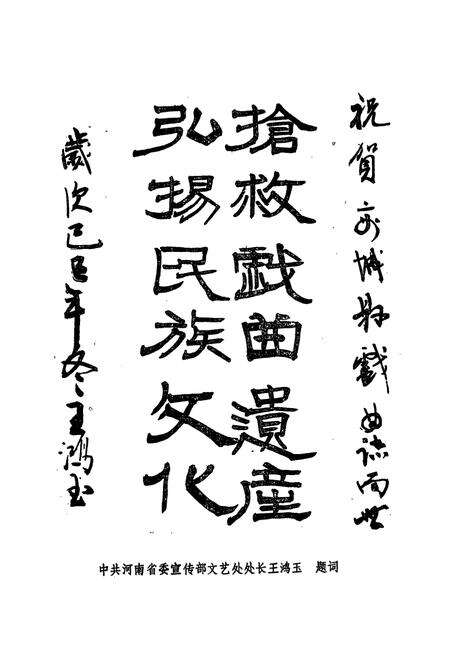 祝賀城縣戲曲誌面世
搶救戲曲遺産
弘揚民族文化
歲次己巳年冬王鴻玉
中共河南省委宣传部文艺处处长王鸿玉 题词